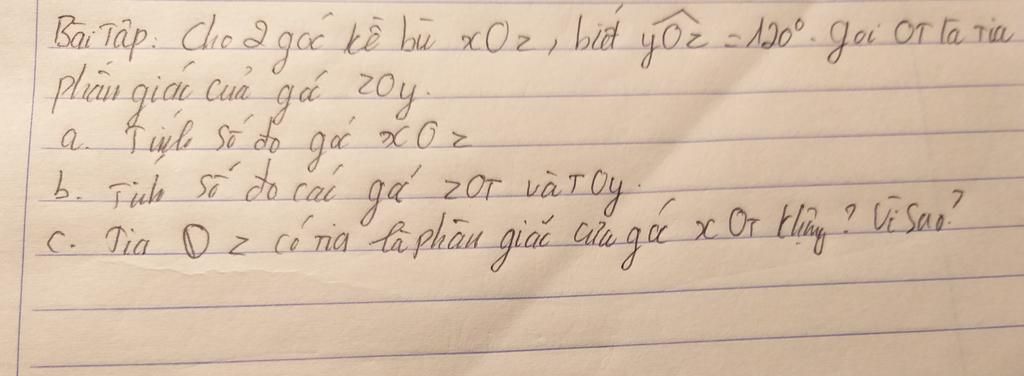 Bài Tập: Cho 2 góc kề bù xOz, biết yOz = 120°. gọi OT là Tia
phân giác của góc zOy.
a. Tính số đo góc xOz
b. Tính số đo các góc zOT và TOy.
c. Tia Oz có tia là phân giác của góc xOT không? Vì sao?